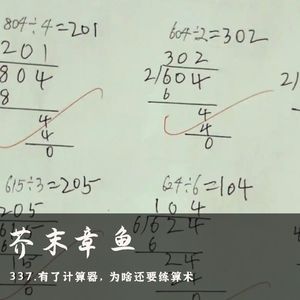 804÷4=201
604÷2=302
201
302
804
2/604
8
6
4
4
4
4
0
0
615÷3=205
624÷6=104
205
104
615
6/624
6
6
15
24
芥末章鱼
337.有了计算器，为啥还要练算术